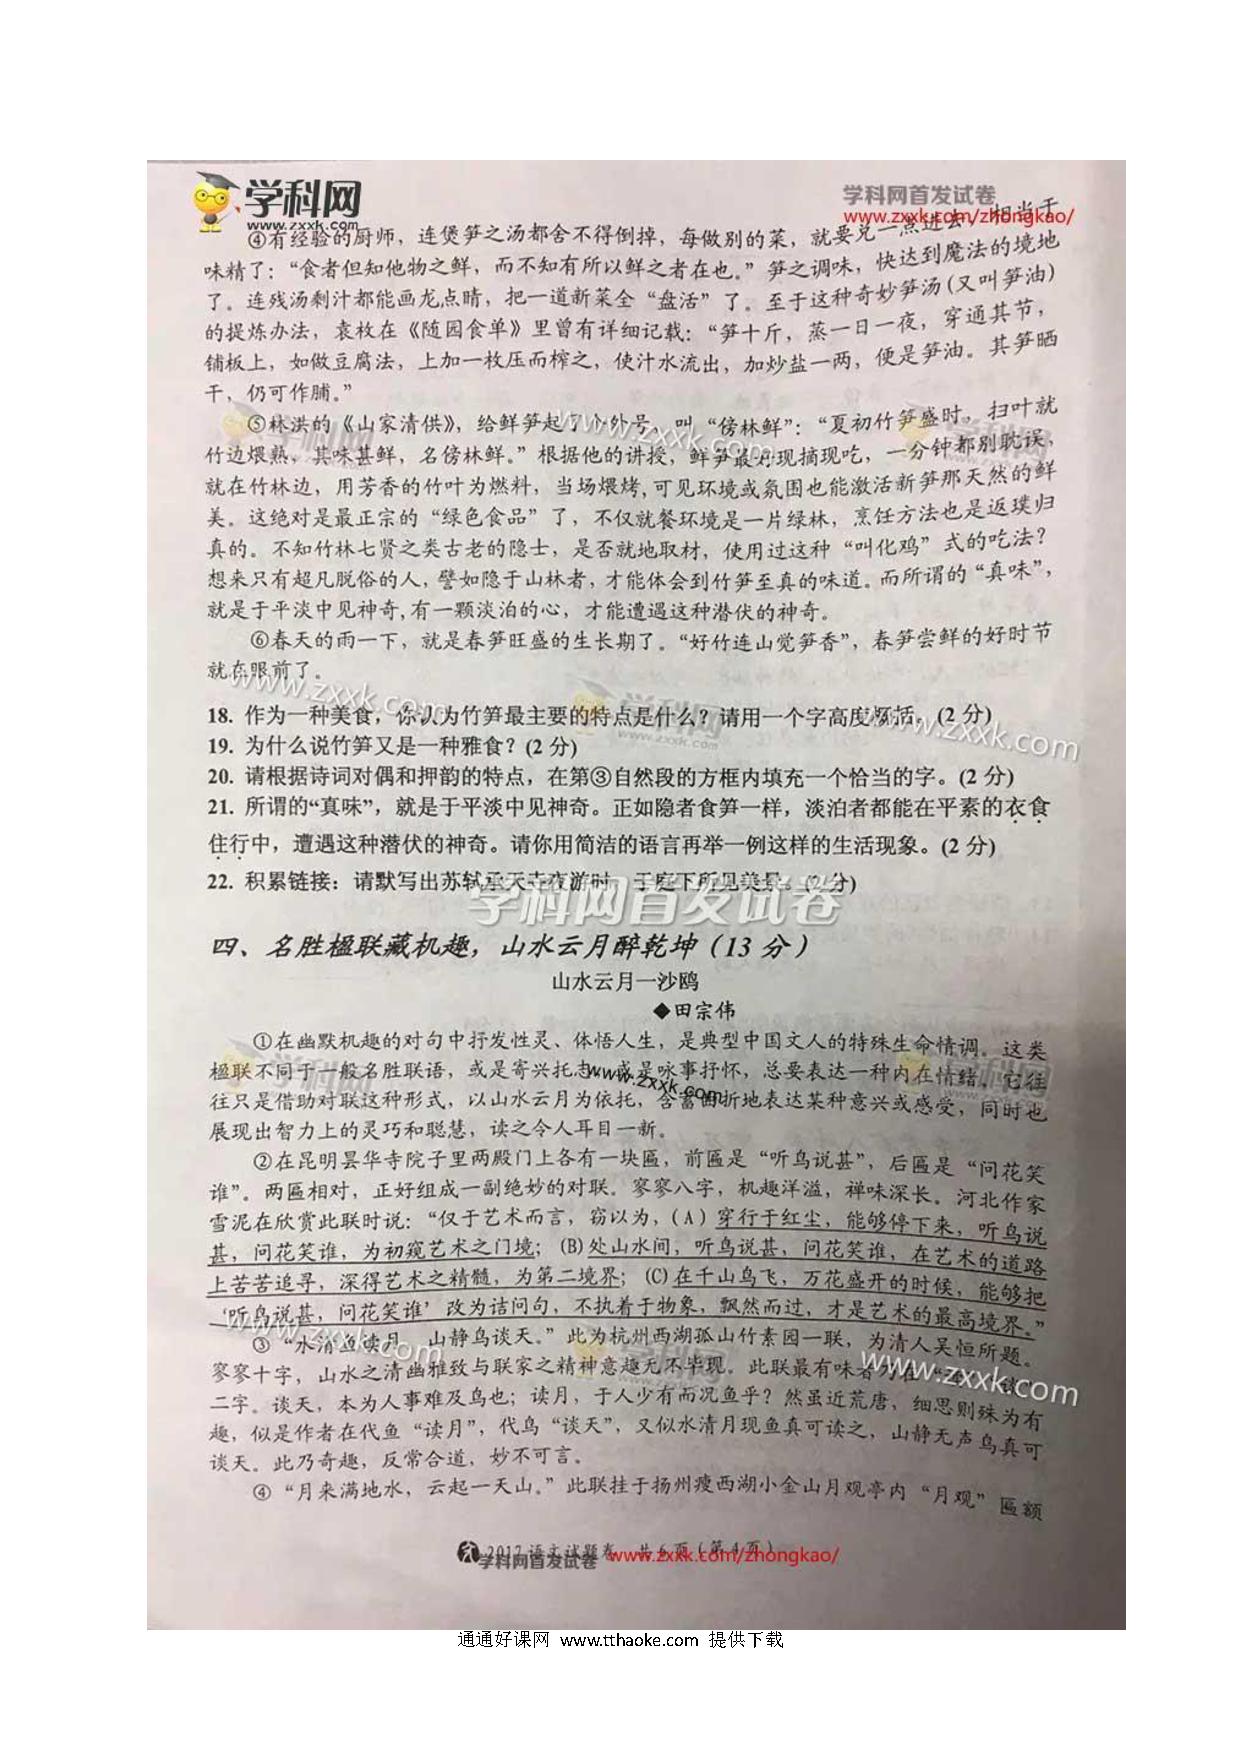 学科网
www.zxxk.com
学科网首发试卷
www.zxxk.com/zhongkao/
④有经验的厨师，连煲笋之汤都舍不得倒掉，每做别的菜，就要兑一点进去，相当于
味精了：“食者但知他物之鲜，而不知有所以鲜之者在也。”笋之调味，快达到魔法的境地
了。连残汤剩汁都能画龙点睛，把一道新菜全“盘活”了。至于这种奇妙笋汤(又叫笋油)
的提炼办法，袁枚在《随园食单》里曾有详细记载：“笋十斤，蒸一日一夜，穿通其节，
铺板上，如做豆腐法，上加一枚压而榨之，使汁水流出，加炒盐一两，便是笋油。其笋晒
干，仍可作脯。”
⑤林洪的《山家清供》，给鲜笋起了个外号，叫“傍林鲜”：“夏初竹笋盛时，扫叶就
竹边煨熟，其味甚鲜，名傍林鲜。”根据他的讲授，鲜笋最好现摘现吃，一分钟都别耽误，
就在竹林边，用芳香的竹叶为燃料，当场煨烤,可见环境或氛围也能激活新笋那天然的鲜
美。这绝对是最正宗的“绿色食品”了，不仅就餐环境是一片绿林，烹饪方法也是返璞归
真的。不知竹林七贤之类古老的隐士，是否就地取材，使用过这种“叫化鸡”式的吃法？
想来只有超凡脱俗的人，譬如隐于山林者，才能体会到竹笋至真的味道。而所谓的“真味”，
就是于平淡中见神奇,有一颗淡泊的心，才能遭遇这种潜伏的神奇。
⑥春天的雨一下，就是春笋旺盛的生长期了。“好竹连山觉笋香”，春笋尝鲜的好时节
就在眼前了。
18. 作为一种美食，你认为竹笋最主要的特点是什么？请用一个字高度概括。(2 分)
19. 为什么说竹笋又是一种雅食？(2 分)
20. 请根据诗词对偶和押韵的特点，在第③自然段的方框内填充一个恰当的字。(2 分)
21. 所谓的“真味”，就是于平淡中见神奇。正如隐者食笋一样，淡泊者都能在平素的衣食
住行中，遭遇这种潜伏的神奇。请你用简洁的语言再举一例这样的生活现象。(2 分)
22. 积累链接：请默写出苏轼承天寺夜游时，于庭下所见美景。(2 分)
学科网首发试卷
四、名胜楹联藏机趣，山水云月醉乾坤（13 分）
山水云月一沙鸥
◆田宗伟
①在幽默机趣的对句中抒发性灵、体悟人生，是典型中国文人的特殊生命情调。这类
楹联不同于一般名胜联语，或是寄兴托志，或是咏事抒怀，总要表达一种内在情绪。它往
往只是借助对联这种形式，以山水云月为依托，含蓄曲折地表达某种意兴或感受，同时也
展现出智力上的灵巧和聪慧，读之令人耳目一新。
②在昆明昙华寺院子里两殿门上各有一块匾，前匾是“听鸟说甚”，后匾是“问花笑
谁”。两匾相对，正好组成一副绝妙的对联。寥寥八字，机趣洋溢，禅味深长。河北作家
雪泥在欣赏此联时说：“仅于艺术而言，窃以为，(A)穿行于红尘，能够停下来，听鸟说
甚，问花笑谁，为初窥艺术之门境；(B)处山水间，听鸟说甚，问花笑谁，在艺术的道路
上苦苦追寻，深得艺术之精髓，为第二境界；(C)在千山鸟飞，万花盛开的时候，能够把
‘听鸟说甚，问花笑谁’改为诘问句，不执着于物象，飘然而过，才是艺术的最高境界。”
③“水清鱼读月，山静鸟谈天。”此为杭州西湖孤山竹素园一联，为清人吴恒所题。
寥寥十字，山水之清幽雅致与联家之精神意趣无不毕现。此联最有味者
二字。谈天，本为人事难及鸟也；读月，于人少有而况鱼乎？然虽近荒唐，细思则殊为有
趣，似是作者在代鱼“读月”，代鸟“谈天”，又似水清月现鱼真可读之，山静无声鸟真可
谈天。此乃奇趣，反常合道，妙不可言。
④“月来满地水，云起一天山。”此联挂于扬州瘦西湖小金山月观亭内“月观”匾额
2017 语文试题卷 共 6 页（第 4 页）
学科网首发试卷 www.zxxk.com/zhongkao/
通通好课网 www.tthaoke.com 提供下载